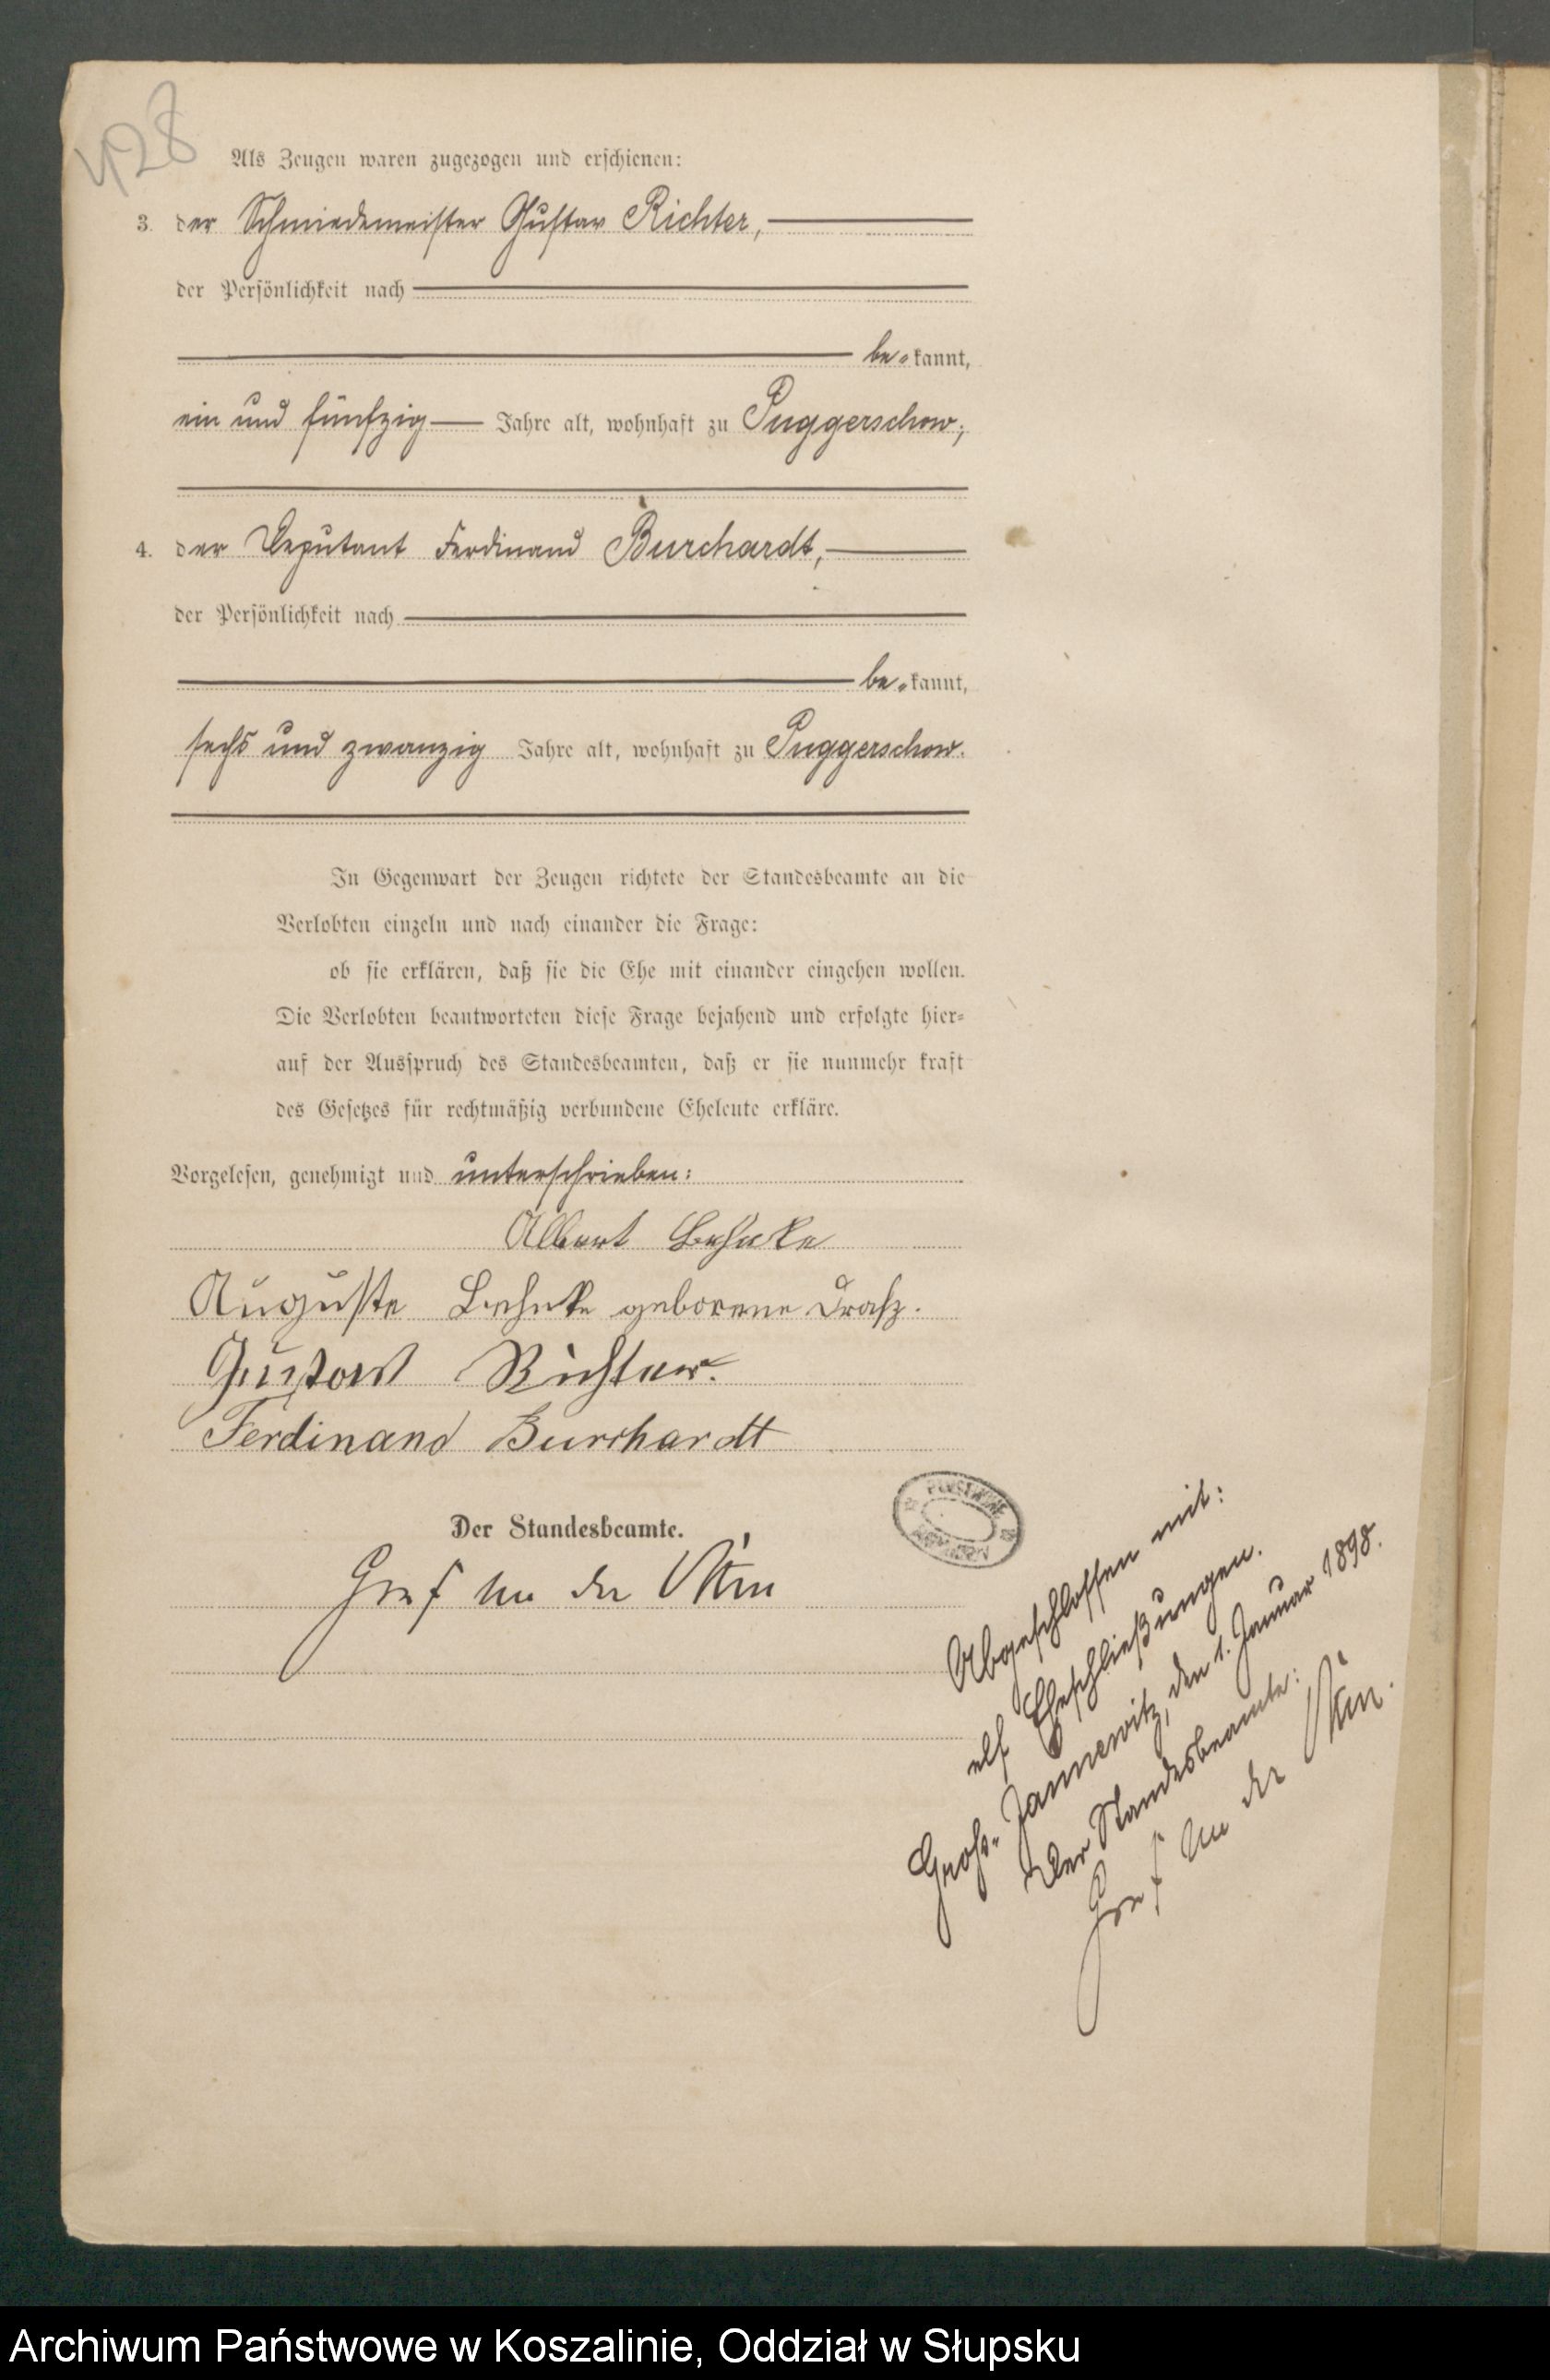 428
Als Zeugen waren zugezogen und erschienen:
3. der Schmiedemeister Gustav Richter,
der Persönlichkeit nach
be=kannt,
ein und fünfzig Jahre alt, wohnhaft zu Puggerschow;
4. der Deputant Ferdinand Burchardt,
der Persönlichkeit nach
be=kannt,
sechs und zwanzig Jahre alt, wohnhaft zu Puggerschow.
In Gegenwart der Zeugen richtete der Standesbeamte an die
Verlobten einzeln und nach einander die Frage:
ob sie erklären, daß sie die Ehe mit einander eingehen wollen.
Die Verlobten beantworteten diese Frage bejahend und erfolgte hier=
auf der Ausspruch des Standesbeamten, daß er sie nunmehr kraft
des Gesetzes für rechtmäßig verbundene Eheleute erkläre.
Vorgelesen, genehmigt und unterschrieben:
Albert Behnke
Auguste Behnke geborene
Gustav Richter.
Ferdinand Burchardt
Der Standesbeamte.
Graf von der Osten
Abgeschlossen mit:
elf Eheschließungen.
Groß-Jannewitz, den 1. Januar 1898.
Der Standesbeamte:
Graf von der Osten.
Archiwum Państwowe w Koszalinie, Oddział w Słupsku